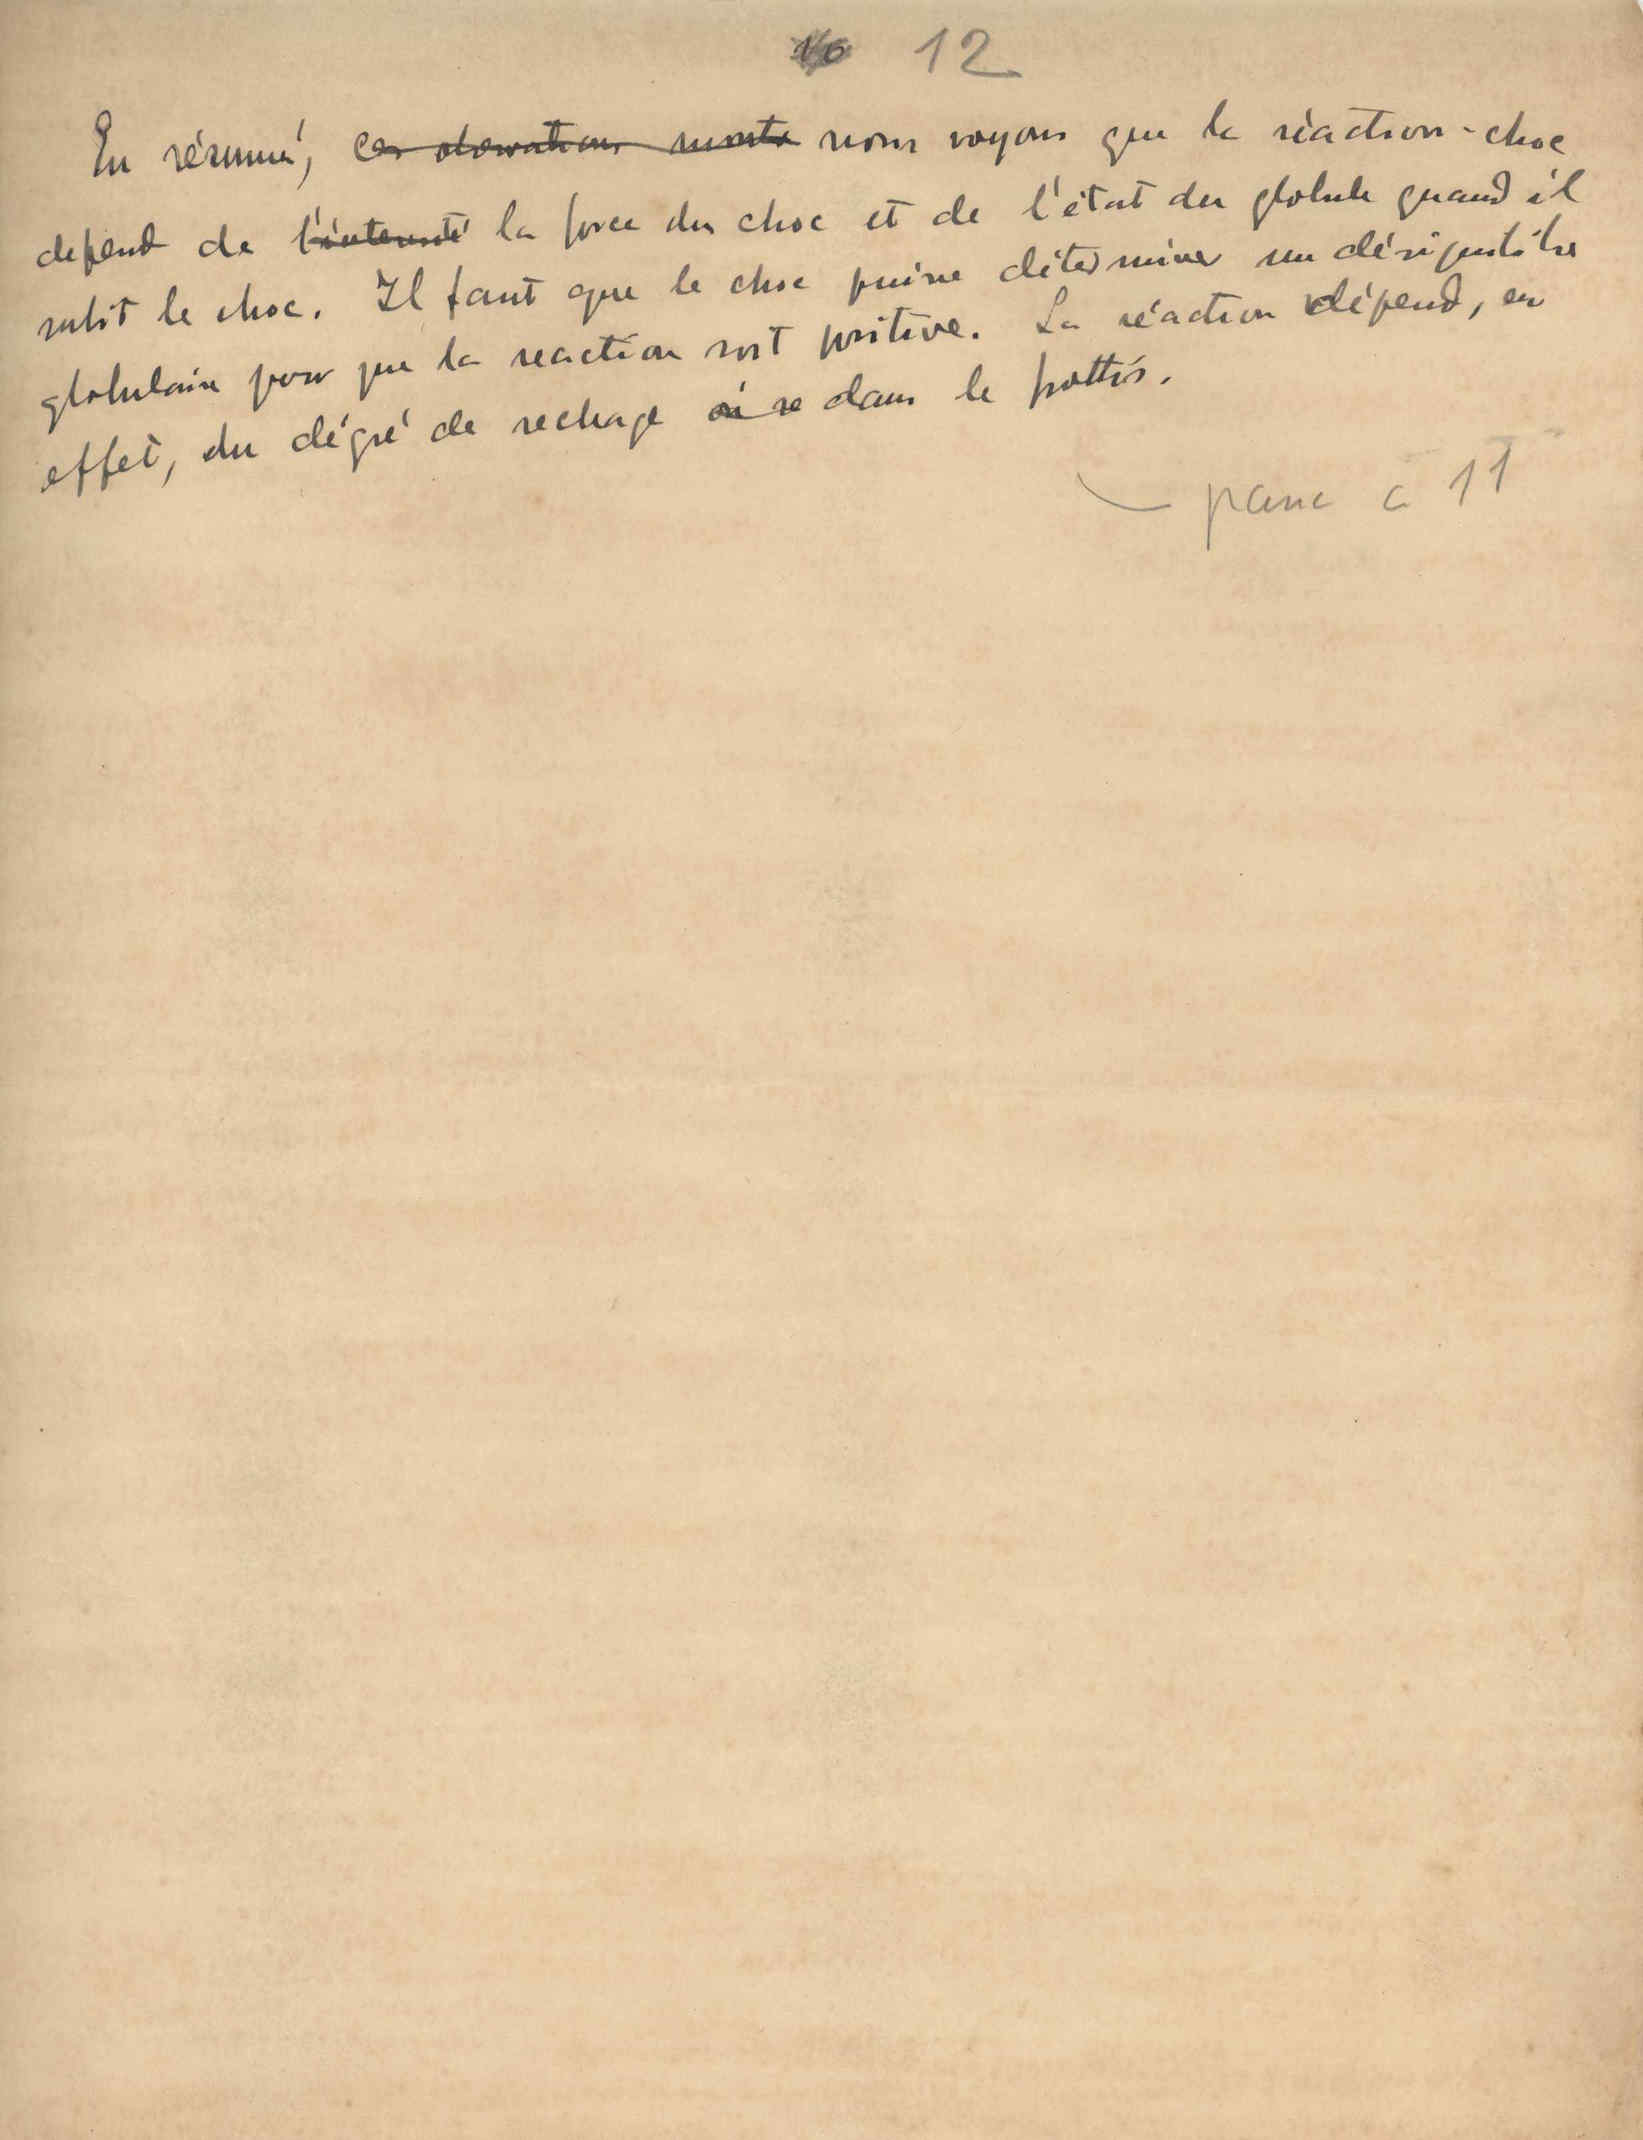 10 12
En résumé, ces observations montre nous voyons que la réaction-choc
depend de l'intensité la force du choc et de l'état du globule quand il
subit le choc. Il faut que le choc puisse déterminer un déséquilibre
globulaire pour que la reaction soit positive. La réaction dépend, en
effet, du dégré de sechage où se dans le frottis.
passe à 11